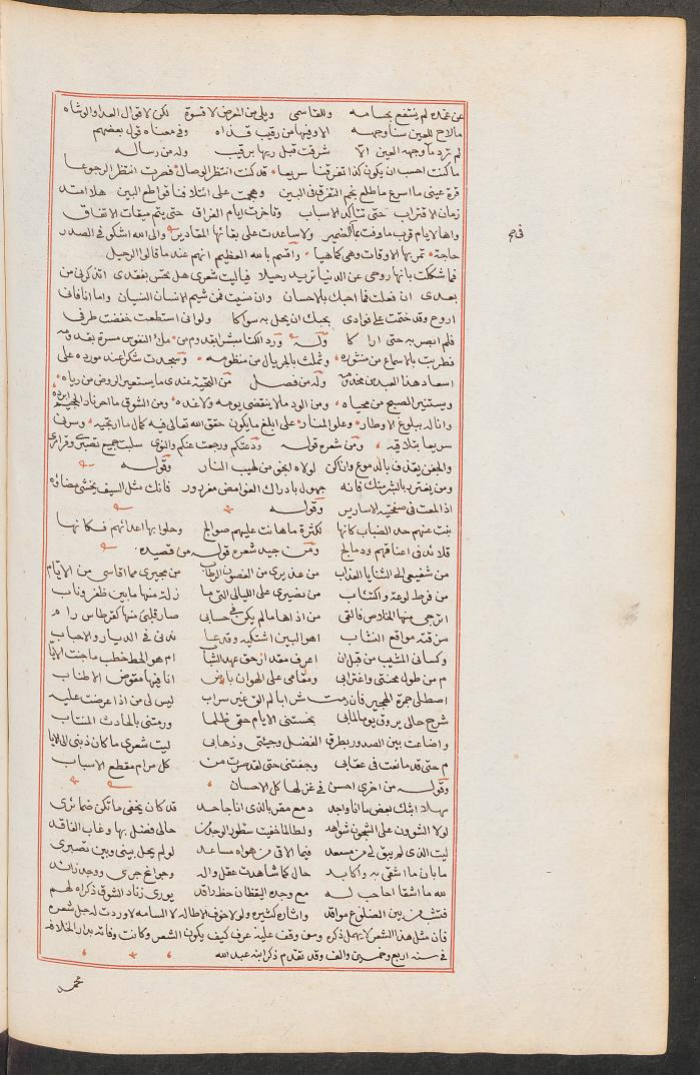 عن عمده لم ينتفع بحسامه وللقاسى ويلى من المعرض لا قسوة لكن لاقوال العدا والوشاه
مالاح للعين سنا وجهه الا وفيها من رقيب قذاه وفى معناه قول بعضهم
لم ترد ماء وجهه العين الا شرقت قبل ريها برقيب وله من رساله
ماكنت احسب ان يكون كذا تفرقنا سريعا قد كنت انتظر الوصال فصرت انتظر الرجوعا
قرة عينى ما اسرع ما طلع نجم التفرق فى البين وهجمت على ائتلافنا قواطع البين هلا امتد
زمان الاقتراب حتى تتأكد الاسباب وتاخرت ايام الفراق حتى يتم ميقات الاتفاق
واها لايام قرب ما وفت بما فى الضمير ولا ساعدت على بقائها المقادير والى الله اشكو فى الصدر
حاجة تمر بها الاوقات وهى كما هيا واقسم بالله العظيم انهم عند ما قالوا الرحيل
فما شككت بانها روحى عن الدنيا تريد رحيلا فياليت شعرى هل تحس بفقدى او تذكرنى من
بعدى ان فعلت فما احبك بالاحسان وان نسيت فمن شيم الانسان النسيان واما انا فانى
اروح وقد ختمت على فؤادى بحبك ان يحل به سواكا ولو انى استطعت خفضت طرفى
فلم ابصر به حتى اراكا وله ورد الكتاب مبشرا بقدوم من ملأ النفوس مسرة بقدومه
فطربت بالاسماع من منثوره وثملت بالجريال من منظومه وسجدت شكرا عند مورده على
اسعاد هذا العبد من مخدومه وله من فصل من التحية عندى ما يستعير الروض من رياه
ويستنير الصبح من محياه ومن الود ما لا ينقضى يومه ولا غده ومن الشوق ما احر نار الجحيم ابرده
واناله ببلوغ الاوطار وعلى المنار على ابلغ ما يكون حقق الله تعالى فيه كمال ما ارتجيه وسرنى
سريعا بتلاقيه ومن شعره قوله ودعتكم ورجعت عنكم والنوى سلبت جميع تصبرى وقرارى
والجفن يقذف بالدموع وان اكن لولاه ابحق من لهيب النار وقوله
ومن يغترر بالشر منك فانه جهول بادراك الغوامض مغرور فانك مثل السيف يخشى مضاؤه
اذا لمعت فى صفحتيه الاسارير وقوله
بنت عنهم حد الضباب كانها لكثرة ما هانت عليهم صوالج وحلوا بها اعدائهم فكانها
قلائد فى اعناقهم ودمالج ومن جيد شعره قوله من قصيده
من شفيعى الى الثنايا العذاب من عذيرى من الغصون الرطاب من مجيرى مما اقاسى من الايام
من فرط لوعة واكتئاب من نصيرى على الليالى التى ما زلت منها ما بين ظفر وناب
ارتجى منها الخلاص فالقى من اذاها ما لم يكن فى حسابى صار قلبى منها كقرطاس رام
من قته مواقع النشاب اهو البين اشتكيه وقدعا ندنى فى الديار والاحباب
وكسانى المشيب من قبل ان اعرف مقدار حق عهد الشبا ام هو الحظ خطب ما جنت الايا
م من طول محنتى واغترابى ومقامى على الهوان بارض انا فيها مقوض الاطناب
اصطلى جمرة الهجير فان رمت شرابا لم الق غير سراب ليس لى من اذا عرضت عليه
شرح حالى يروق يوما لما بى بخستنى الايام حقى ظلما ورمتنى بالحادث المنتاب
واضاعت بين الصدور بطرق الفضل وجيئتى وذهابى ليت شعرى ما كان ذنبى الى الايا
م حتى قد مانعت فى عقابى وجفتنى حتى لقد صرت من كل مرام مقطع الاسباب
وقوله من اخرى احسن فى غزلها كل الاحسان
مهلا ابثك بعض ما انا واجد دمع مقر بالذى انا جاحد قد كان يخفى ما تكن ضمائرى
لولا الشؤون على الشجون شواهد ولطالما خفيت سطور الوجد من حالى ففضل بها وغاب الفاقد
ليت الذى لم يبق لى من مسعد فيما الاقى من هواه مساعد لو لم يحل بينى وبين تصبرى
ما بان ما اشقى به واكابد حال كما شاهدت عقل واله وجوانح حرى ووجد زائد
لله ما اشقا احاجب له مع وجده اليقظان حظ راقد يورى زناد الشوق ذكراه لهم
فتشب من بين الضلوع مواقد واشاره كثيره ولولا خوف الاطاله لا السامه لاوردت له جل شعره
فان مثل هذا الشعر لا يهمل ذكره ومن وقف عليه عرف كيف يكون الشعر وكانت وفاته بدار الخلافه
فى سنه اربع وخمسين والف وقد تقدم ذكر ابنه عبد الله
محمد